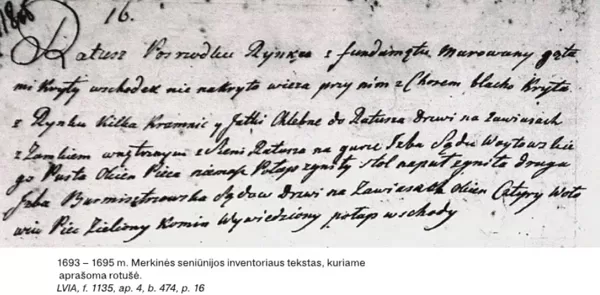 16.
Ratusz Posrzodku Rynku z fundamętu Murowany gąta
mi kryty wschodek nie nakryto wieza przy nim z Chorem blachą Kryta
z Rynku Kilka Kramnic y Jatki Chlebne do Ratusza Drzwi na zawiasach
z Zamkiem wnętrznym z Sieni Ratusza na gurze Izba Sądu Woytowskie
go Pusta Okien Pieca niemasz Potap zgniły stol napuł zgniła druga
Izba Burmisztrzowska Sądow Drzwi na Zawiasach okien Cztyry
Piec Zielony Komin Wywiedziony potap wschody
1693 – 1695 m. Merkinės seniūnijos inventoriaus tekstas, kuriame
aprašoma rotušė.
LVIA, f. 1135, ap. 4, b. 474, p. 16